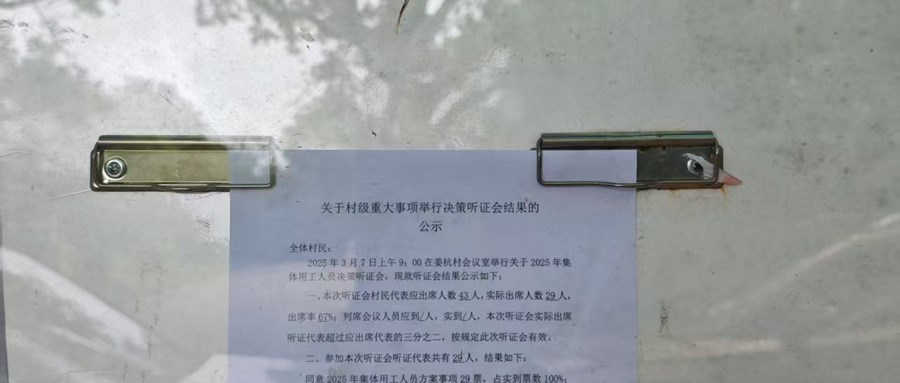 关于村级重大事项举行决策听证会结果的
公示
全体村民：
2025年3月7日上午9：00在姜杭村会议室举行关于2025年集
体用工人员决策听证会，现就听证会结果公示如下：
一、本次听证会村民代表应出席人数43人，实际出席人数29人，
出席率67%；列席会议人员应到/人，实到/人，本次听证会实际出席
听证代表超过应出席代表的三分之二，按规定此次听证会有效。
二、参加本次听证会听证代表共有29人，结果如下：
同意2025年集体用工人员方案事项29票，占实到票数100%；